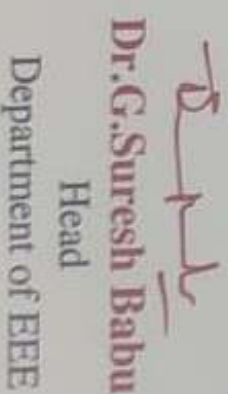 Dr.G.Suresh Babu
Head
Department of EEE